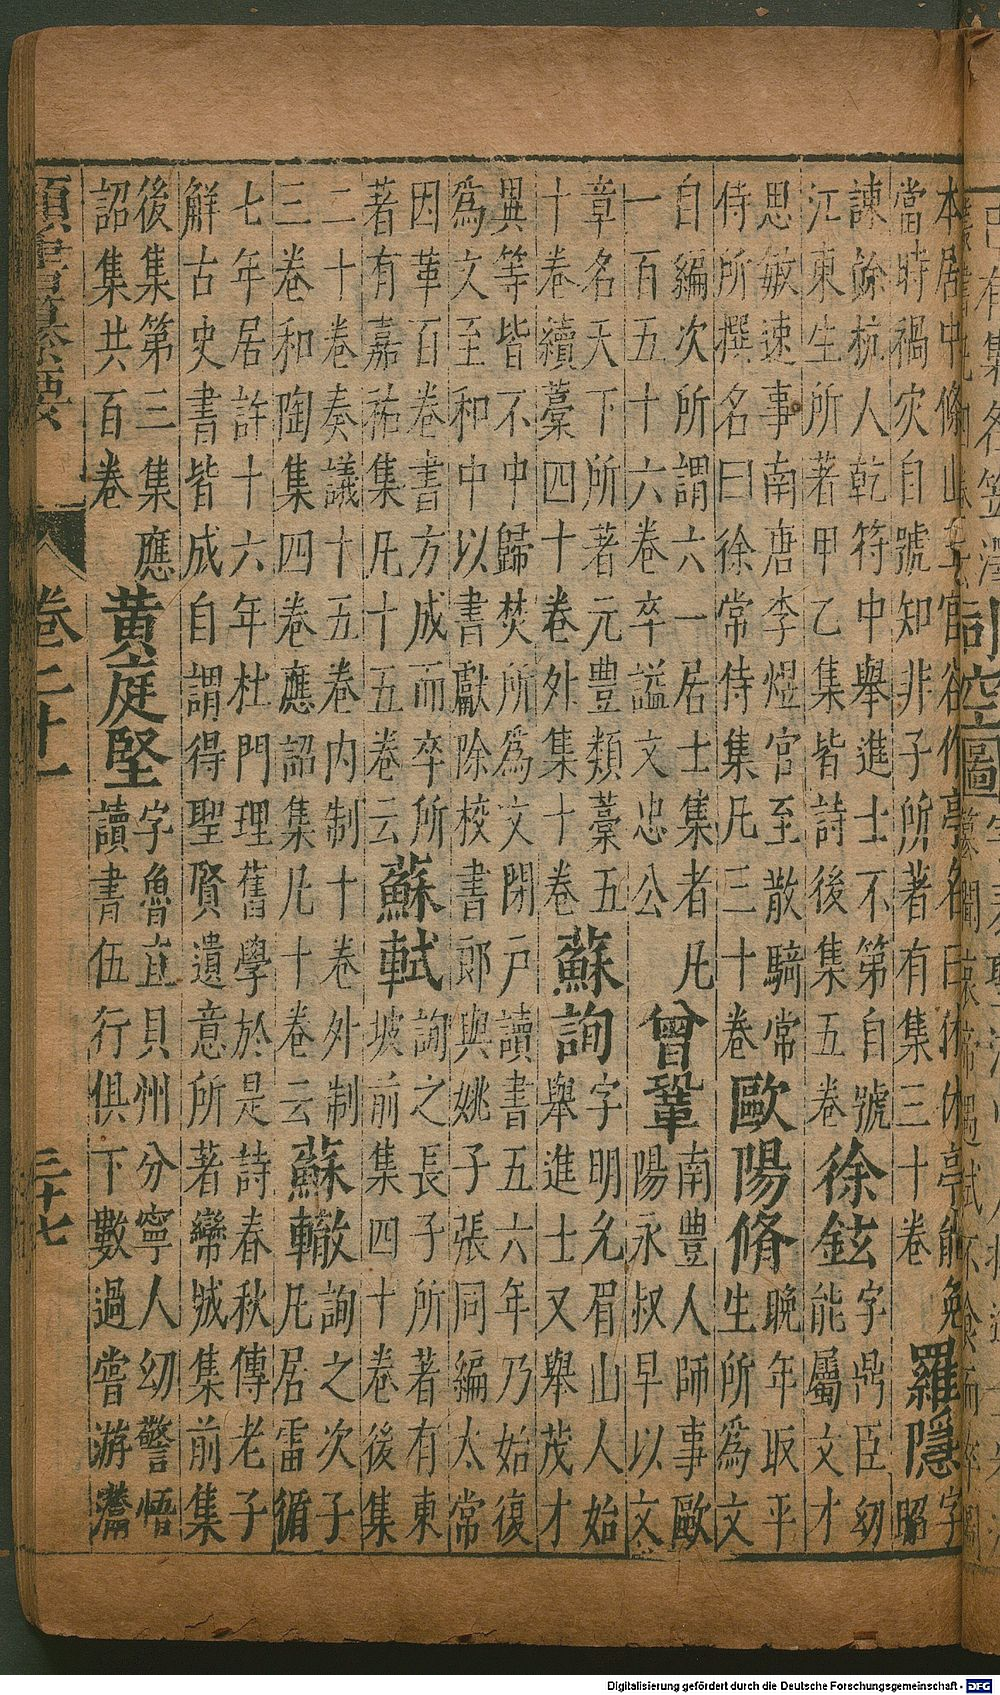 本居中條山王官谷作亭名曰休休亭能免
當時禍灾自號知非子所著有集三十卷
羅隱
字
昭
諫餘杭人乾符中舉進士不第自號
江東生所著甲乙集皆詩後集五卷
徐鉉
字鼎臣幼
能屬文才
思敏速事南唐李煜官至散騎常
侍所撰名曰徐常侍集凡三十卷
歐陽脩
晚年取平
生所為文
自編次所謂六一居士集者凡
一百五十六卷卒謚文忠公
曾鞏
南豐人師事歐
陽永叔早以文
章名天下所著元豐類藁五
十卷續藁四十卷外集十卷
蘇詢
字明允眉山人始
舉進士又舉茂才
異等皆不中歸焚所為文閉戶讀書五六年乃始復
為文至和中以書獻除校書郎與姚子張同編太常
因革百卷書方成而卒所
著有嘉祐集凡十五卷云
蘇軾
詢之長子所著有東
坡前集四十卷後集
二十卷奏議十五卷内制十卷外制
三卷和陶集四卷應詔集凡十卷云
蘇轍
詢之次子
凡居雷循
七年居許十六年杜門理舊學於是詩春秋傳老子
解古史書皆成自謂得聖賢遺意所著欒城集前集
後集第三集應
詔集共百卷
黄庭堅
字魯直貝州分寧人幼警悟
讀書伍行俱下數過嘗游灊
類書纂要 卷二十一 三十七
Digitalisierung gefördert durch die Deutsche Forschungsgemeinschaft - DFG